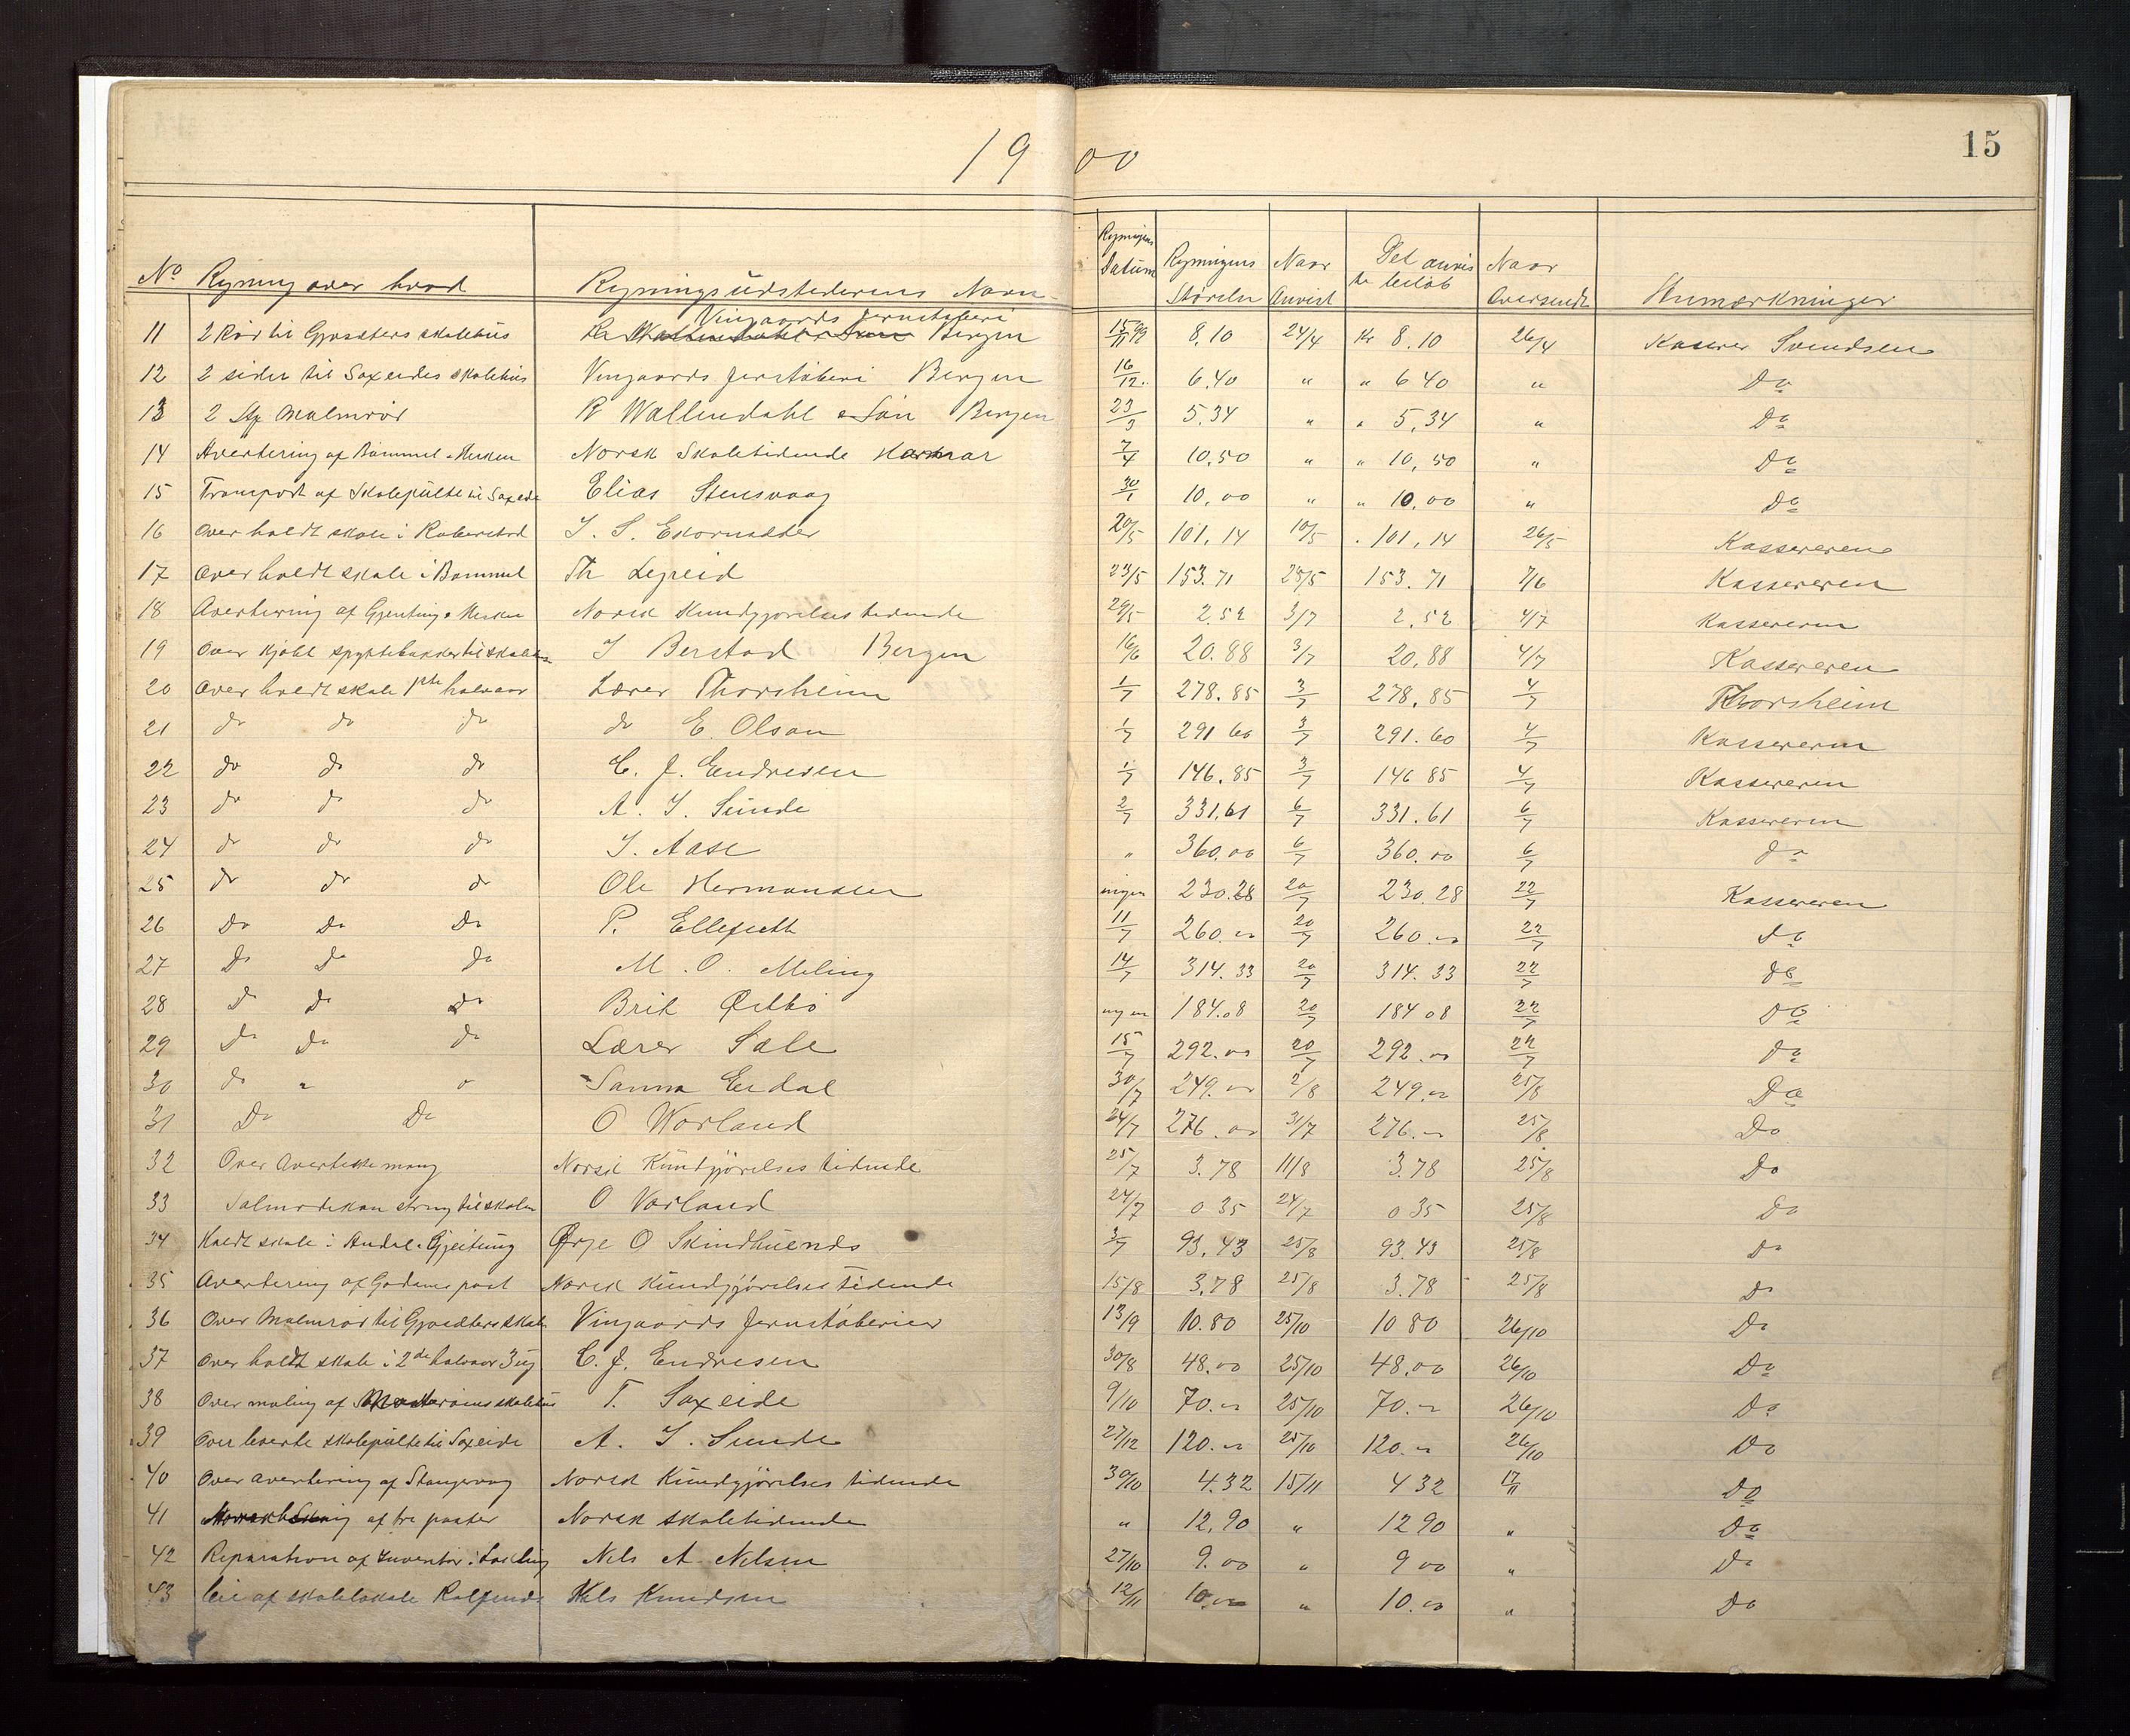 1900
15
No Regning over hvad Regningsudstederens Navn Regningens Datum Regningens Størelse Naar Anvist Det anviste beløb Naar Oversendt Anmærkninger
Vingaards Jernstøberi
11 2 Rør til Gjosæters skolehus Bergen 15/11 99 8,10 24/4 Kr 8.10 26/4 Kaserer Svendsen
12 2 sider til Saxeides skolehus Vingaards Jernstøberi Bergen 16/12 6.40 " " 6 40 " Do
13 2 Malmrør R Wallendahl & Søn Bergen 23/3 5.34 " " 5,34 " Do
14 Avertering af Bømmel - Mersken Norsk Skoletidende Hamar 7/4 10,50 " " 10,50 " Do
15 Transport af Skolepulte til Saxeide Elias Stensvaag 30/1 10,00 " " 10,00 " Do
16 Over holdt skole i J. S. Ekornsæter 20/5 101,14 10/5 101,14 26/5 Kassereren
17 Over holdt skole i Bømmel Th Legreid 23/5 153.71 25/5 153.71 7/6 Kassereren
18 Avertering af Gjeitung - Mersken Norsk Kundgjørelses tidende 29/5 2.52 3/7 2,52 4/7 Kassereren
19 Over kjøbt spyttebakker til skolehus J Berstad Bergen 16/6 20.88 3/7 20,88 4/7 Kassereren
20 Over holdt skole 1ste halvaar Lærer Thorsheim 1/7 278.85 3/7 278,85 4/7 Thorsheim
21 do do do do E. Olsen 1/7 291 60 3/7 291.60 4/7 Kassereren
22 do do do C. J. Endresen 1/7 146.85 3/7 146 85 4/7 Kassereren
23 do do do A. J. Sunde 2/7 331,61 6/7 331.61 6/7 Kassereren
24 do do do J. Aase " 360,00 6/7 360,00 6/7 do
25 do do do Ole Hermansen ingen 230.28 20/7 230,28 22/7 Kassereren
26 Do Do Do P. 11/7 260.00 20/7 260.00 22/7 do
27 Do Do Do M. O. Meling 14/7 314.33 20/7 314.33 22/7 do
28 Do Do Do Brit Østbø ingen 184.08 20/7 184 08 22/7 Do
29 Do Do Do Lærer Sæle 15/7 292.00 20/7 292.00 22/7 do
30 do " o Sanna Erdal 30/7 249.00 2/8 249.00 25/8 Do
31 Do Do O Vorland 24/7 276.00 31/7 276.00 25/8 Do
32 Over Norsk Kundgjørelses tidende 25/7 3.78 11/8 3.78 25/8 Do
33 Salmodikon streng til skolen O Vorland 24/7 0 35 24/7 0 35 25/8 Do
34 Holdt skole i Andal - Gjeitung Ørje O 3/7 93.43 25/8 93.43 25/8 Do
35 Avertering af post Norsk Kundgjørelses tidende 15/8 3,78 25/8 3.78 25/8 Do
36 Over Malmrør til Gjosæters skole Vingaards Jernstøberier 13/9 10.80 25/10 10 80 26/10 Do
37 Over holdt skole i 2de halvaar 3 ug C. J. Endresen 30/8 48.00 25/10 48.00 26/10 Do
38 Over maling af skolehus T. Saxeide 9/10 70.00 25/10 70.00 26/10 Do
39 Over leverte skolepulte til Saxeide A. J. Sunde 27/12 120.00 25/10 120.00 26/10 Do
40 Over avertering af Stangevaag Norsk Kundgjørelses tidende 30/10 4.32 15/11 4 32 17/11 Do
41 af tre poster Norsk skoletidende " 12,90 " 12 90 " Do
42 Reparation af Inventar i Nils A. Nelsen 27/10 9.00 " 9 00 " Do
43 leie af skolelokale Nils Knudsen 12/11 10.00 " 10.00 " Do